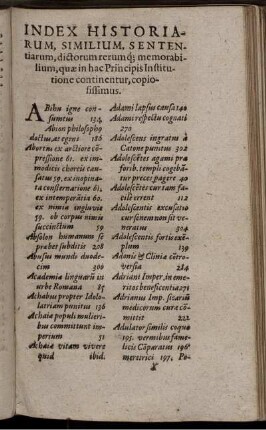 INDEX HISTORIA-
RUM, SIMILIUM, SENTEN-
tiarum, dictorum rerumq́; memorabi-
lium, quæ in hac Principis Institu-
tione continentur, copio-
sissimus.
ABihu igne con-
sumtus 134
Abion philosopho
ductus at egens 186
Abortus ex arctiore cō-
pressione 61. ex im-
moditis choreis cau-
satus 59. ex inopina-
ta consternatione 61.
ex intemperātia 60.
ex nimio ingluvie
59. ob corpus nimis
succinctum 59
Absolon humanum se
præbet subditis 208
Abusus mundi duode-
cim 300
Academia linguarū ex
urbe Romana 85
Achabus propter Idolo-
latriam punitus 136
Achaiæ populi mulieri-
bus committunt im-
perium 51
Achaiæ vitam vivere
quid ibid.
Adami lapsus causa 140
Adami respectu cognati
270
Adolescens ingratus à
Catone punitus 302
Adolescētes agami præ
forib. templi cogebā-
tur preces peragere 20
Adolescētes cur tam fa-
cilè errent 112
Adolescentis excusatio
cur senem non sit ve-
neratus 304
Adolescentis fortis exē-
plum 139
Adonis & Clinia cōtro-
versia 214
Adriani Imper. in eme-
ritos beneficentia 271
Adrianus Imp. sicariū
medicorum cura cō-
mittit 222
Adulator similis coquo
195. vermibus fame-
licis cōparatus 196
meretrici 197. Po-
x